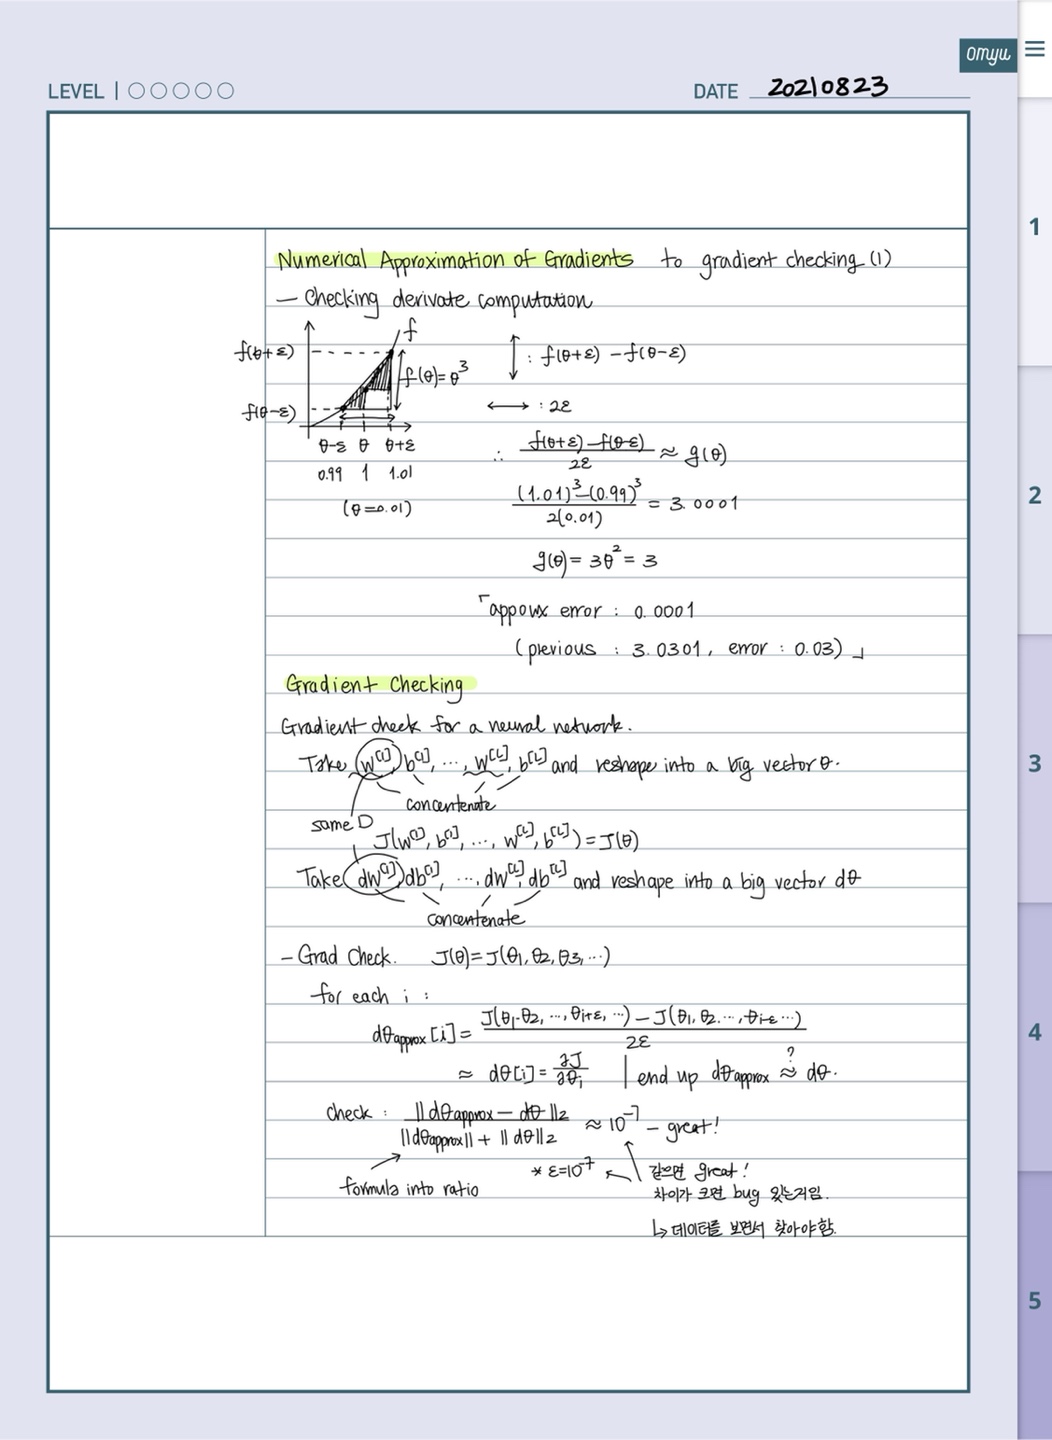 omyu
LEVEL
DATE 20210823
Numerical Approximation of Gradients to gradient checking (1)
– Checking derivate computation
f
f(θ+ε)
f(θ)=θ³
f(θ-ε)
θ-ε θ θ+ε
0.99 1 1.01
(θ=0.01)
↕ : f(θ+ε) - f(θ-ε)
↔ : 2ε
∴ f(θ+ε) - f(θ-ε) / 2ε ≈ g(θ)
(1.01)³-(0.99)³ / 2(0.01) = 3.0001
g(θ) = 3θ² = 3
「appoux error : 0.0001
(previous : 3.0301, error : 0.03)」
Gradient Checking
Gradient check for a neural network.
Take w[1], b[1], ..., w[L], b[L] and reshape into a big vector θ.
concentenate
same D
J(w[1], b[1], ..., w[L], b[L]) = J(θ)
Take dw[1], db[1], ... dw[L], db[L] and reshape into a big vector dθ
concentenate
– Grad Check. J(θ) = J(θ1, θ2, θ3, ...)
for each i :
dθapprox[i] = J(θ1, θ2, ..., θi+ε, ...) - J(θ1, θ2, ..., θi-ε ...) / 2ε
≈ dθ[i] = ∂J/∂θi | end up dθapprox ≈? dθ.
check : ||dθapprox - dθ||2 / ||dθapprox|| + ||dθ||2 ≈ 10⁻⁷ – great!
formula into ratio
* ε=10⁻⁷
같으면 great!
차이가 크면 bug 있는거임.
↳ 데이터를 보면서 찾아야 함.
1
2
3
4
5